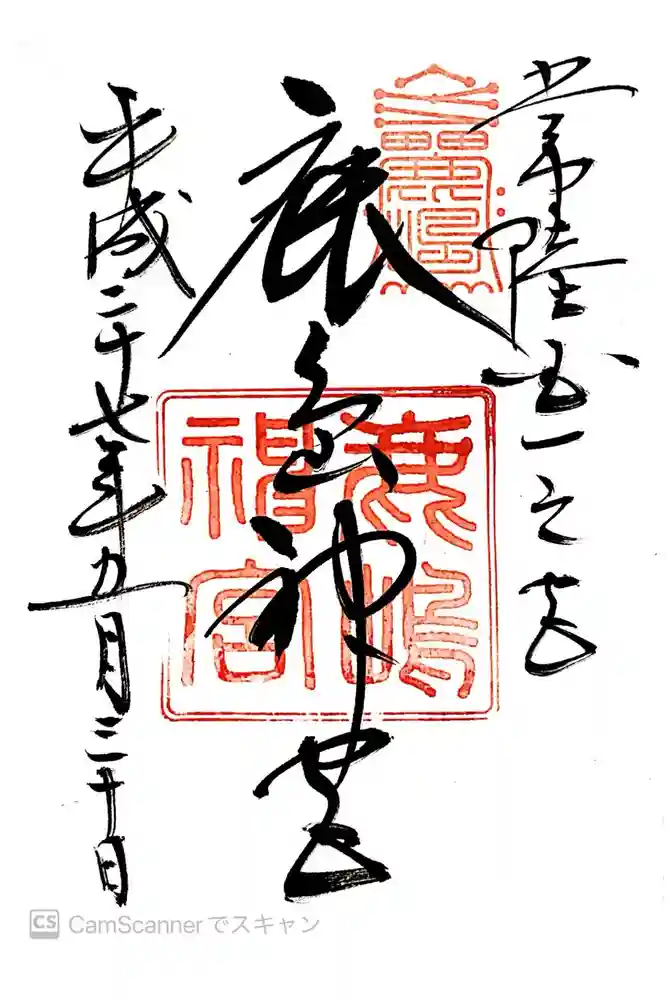 常陸国一之宮
鹿島神宮
平成二十七年五月三十日
鹿嶋
神宮
CS CamScannerでスキャン